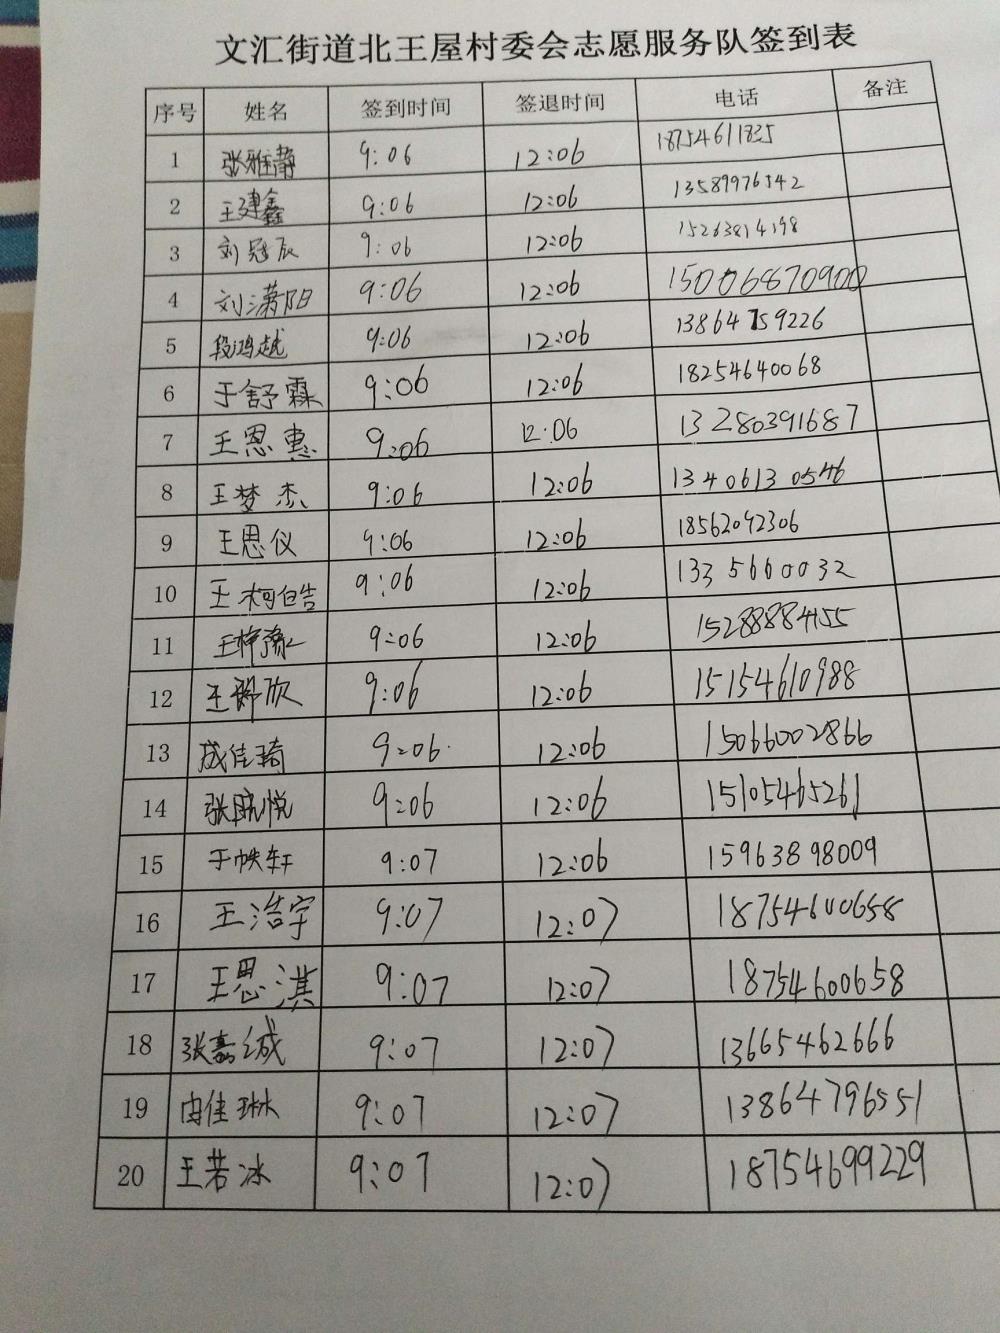 文汇街道北王屋村委会志愿服务队签到表
序号 姓名 签到时间 签退时间 电话 备注
1 张雅静 9:06 12:06 18754611835
2 王建鑫 9:06 12:06 13589976542
3 刘冠辰 9:06 12:06 15263814198
4 刘潇阳 9:06 12:06 15006870900
5 段鸿越 9:06 12:06 13864759226
6 于舒霖 9:06 12:06 18254640068
7 王恩惠 9:06 12:06 13280391687
8 王梦杰 9:06 12:06 13406130546
9 王思仪 9:06 12:06 18562092306
10 王柯皓 9:06 12:06 1335660032
11 9:06 12:06 15288884155
12 9:06 12:06 15154610988
13 成佳琦 9:06 12:06 15066002866
14 张晓悦 9:06 12:06 15105465261
15 于帙轩 9:07 12:06 15963898009
16 王浩宇 9:07 12:07 18754600658
17 王思淇 9:07 12:07 18754600658
18 张嘉诚 9:07 12:07 13665462666
19 由佳琳 9:07 12:07 13864796551
20 王若冰 9:07 12:07 18754699229